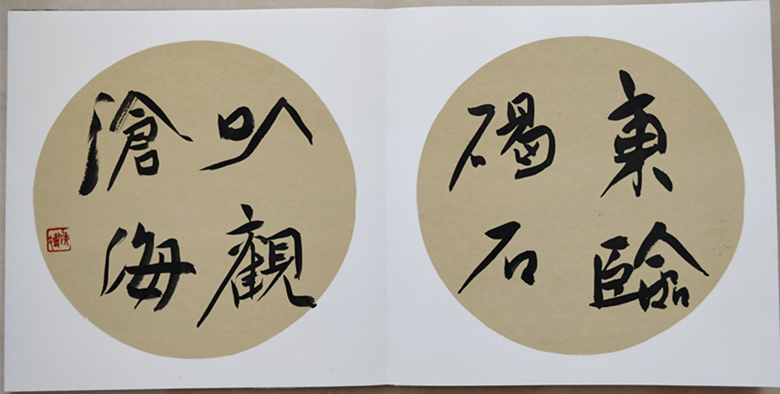 東臨
碣石
以觀
滄海